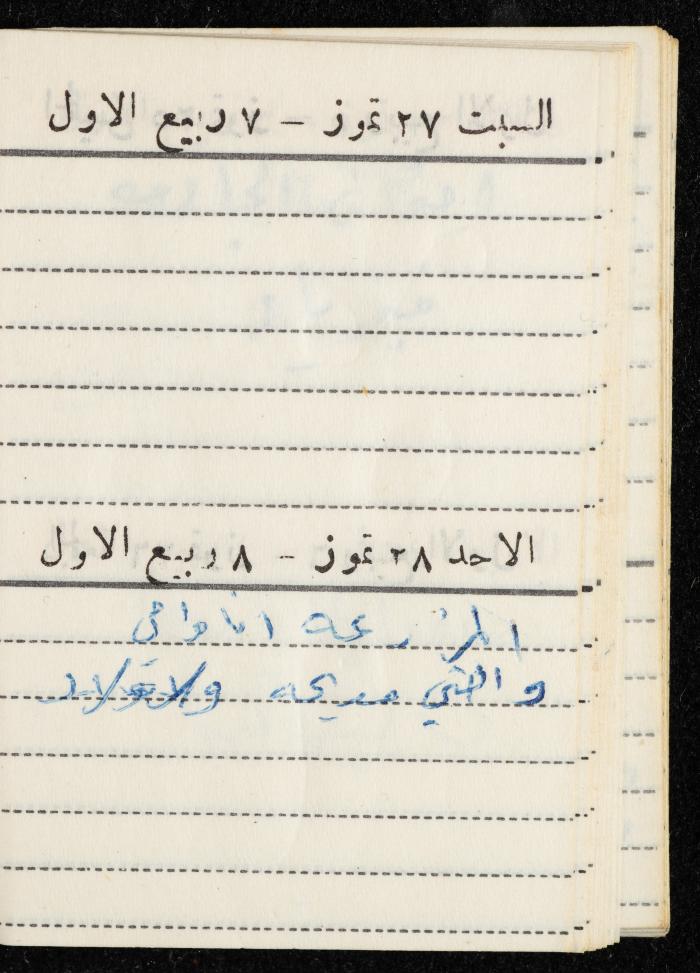 السبت ٢٧ تموز - ٧ ربيع الاول
الاحد ٢٨ تموز - ٨ ربيع الاول
المزرعه انا وامي
واختي مديحه والاولاد